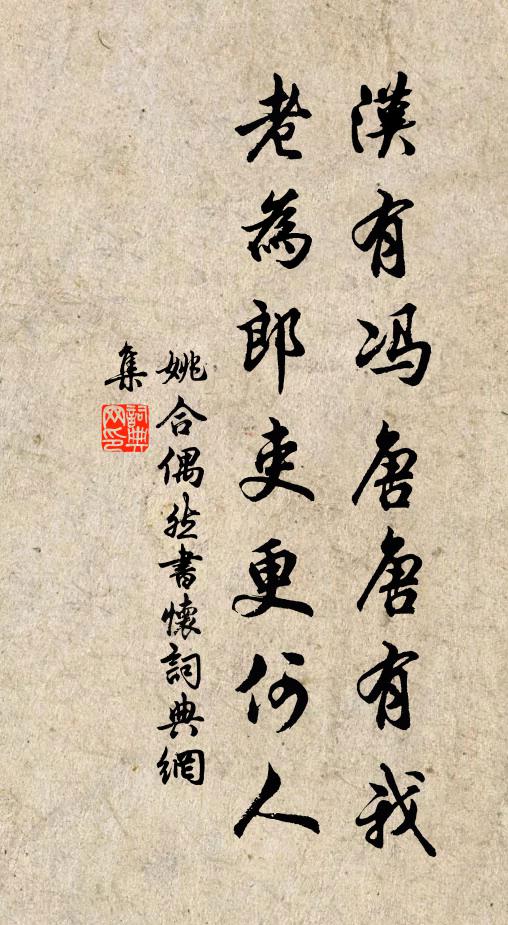 漢有馮唐唐有我
老為郎吏更何人
姚合偶然書懷詞典網
集
詞典
網印